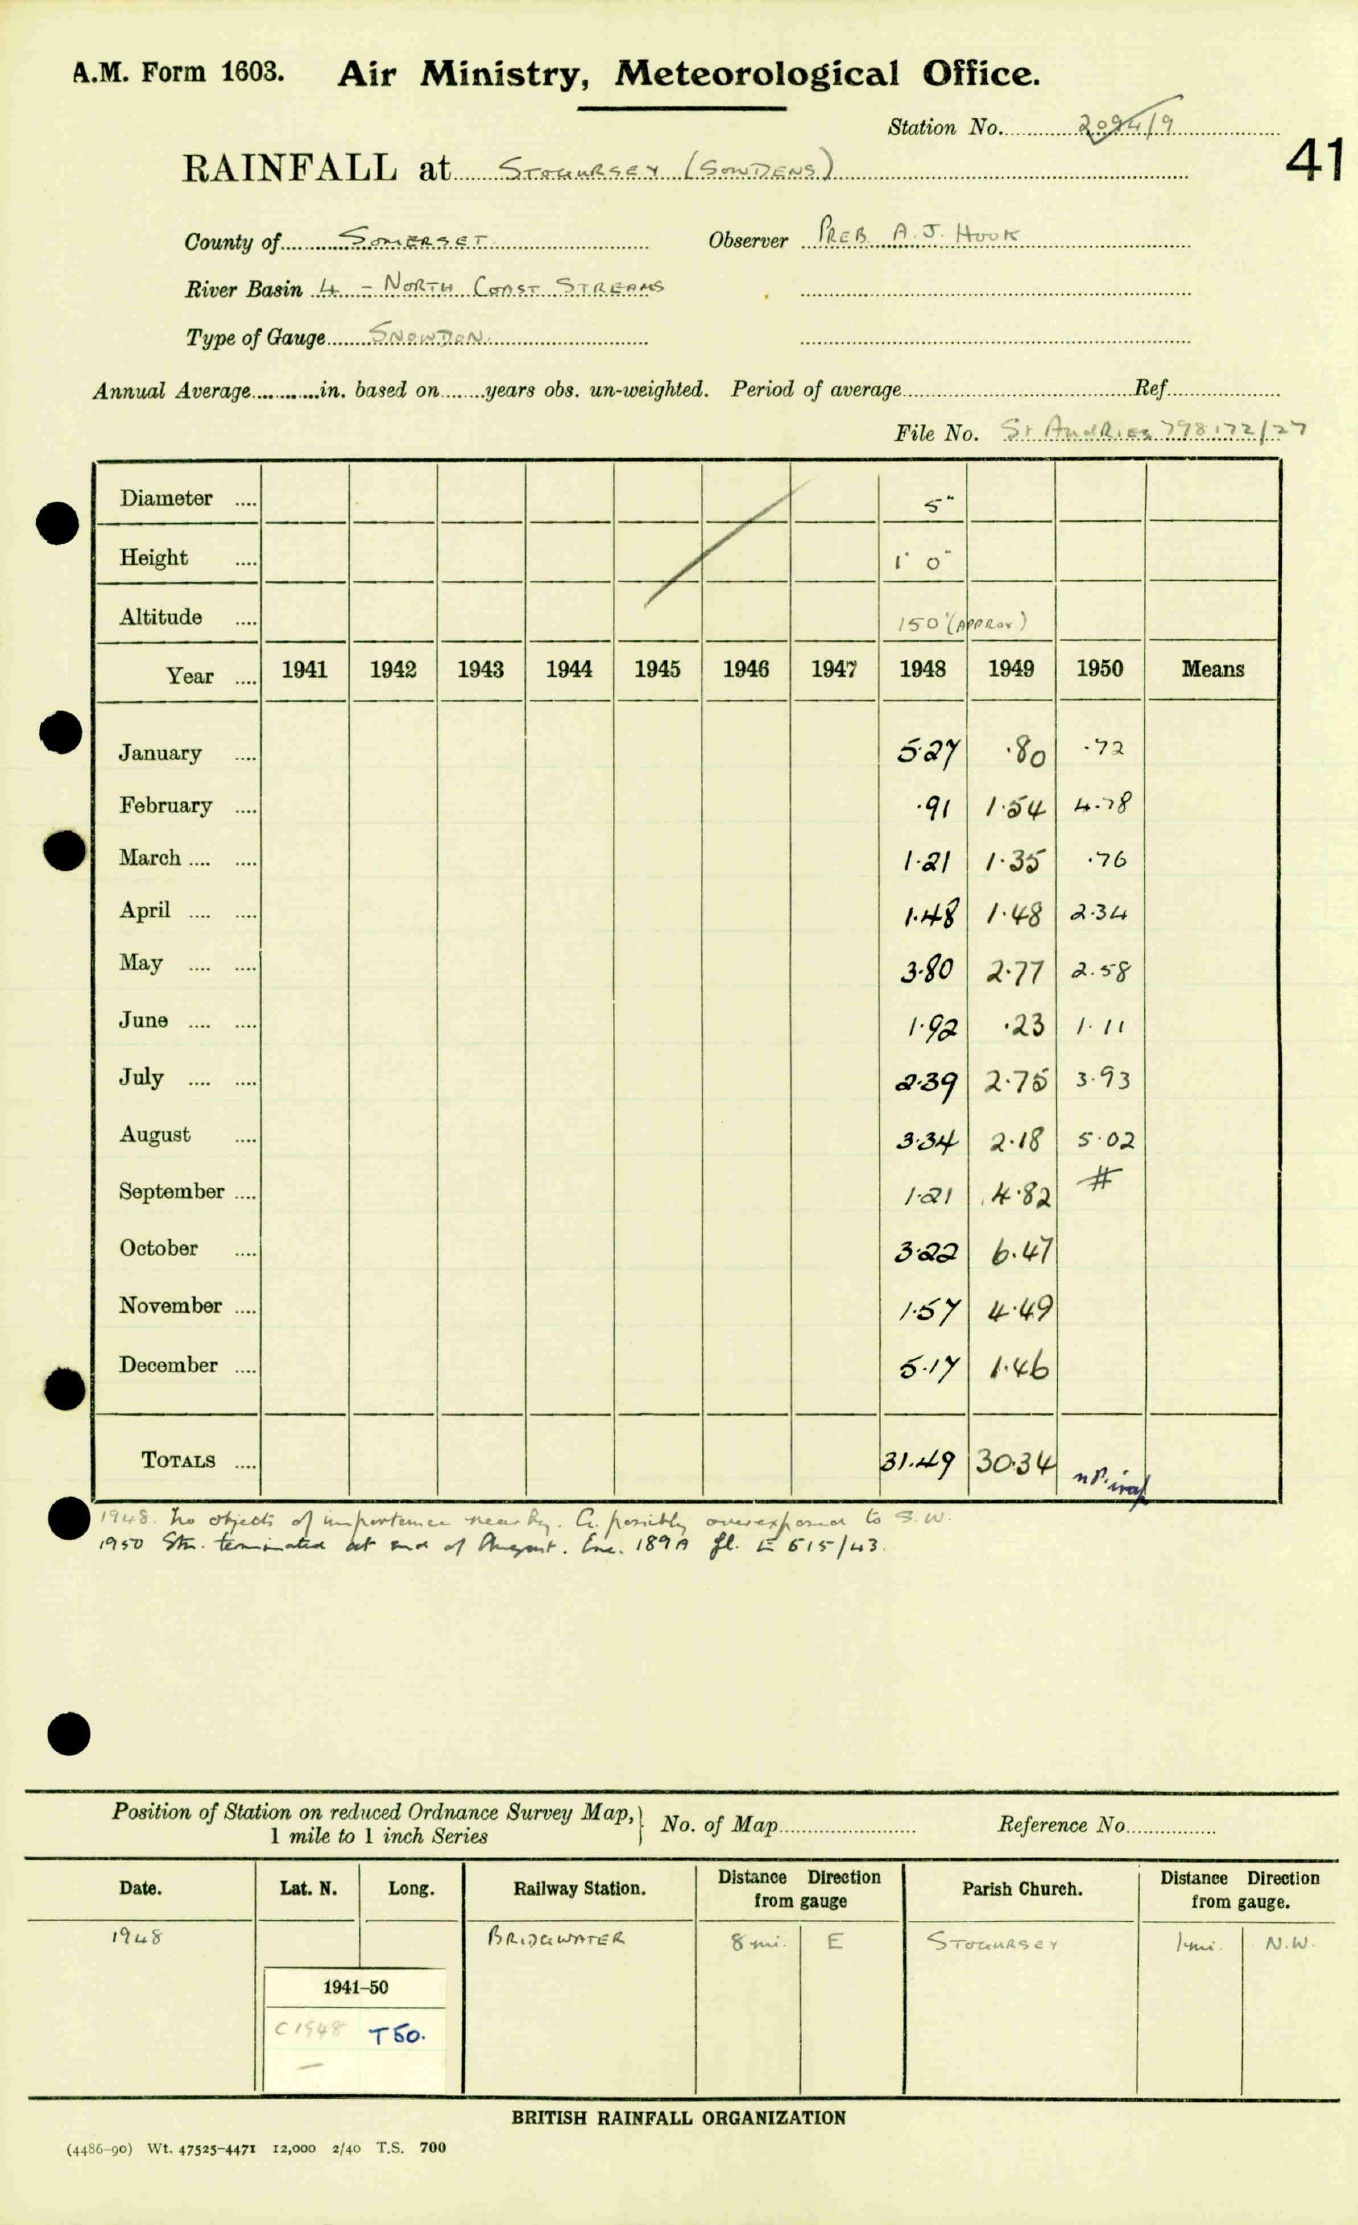 A.M. Form 1603. Air Ministry, Meteorological Office.
Station No. 2094/9
41
RAINFALL at Stogursey (Sowdens)
County of Somerset Observer Preb. A. J. Hook
River Basin 4 - North Coast Streams
Type of Gauge Snowdon
Annual Average in. based on years obs. un-weighted. Period of average Ref.
File No. St Audries 798172/27
Diameter 5"
Height 1' 0"
Altitude 150' (Approx)
Year 1941 1942 1943 1944 1945 1946 1947 1948 1949 1950 Means
January 5.27 .80 .72
February .91 1.54 4.78
March 1.21 1.35 .76
April 1.48 1.48 2.34
May 3.80 2.77 2.58
June 1.92 .23 1.11
July 2.39 2.75 3.93
August 3.34 2.18 5.02
September 1.21 4.82 #
October 3.22 6.47
November 1.57 4.49
December 5.17 1.46
TOTALS 31.49 30.34
1948. No objects of importance nearby. G. possibly overexposed to S.W.
1950 Stn. terminated at end of August. Enc. 189A fl. E 615/43.
Position of Station on reduced Ordnance Survey Map, 1 mile to 1 inch Series } No. of Map Reference No.
Date. Lat. N. Long. Railway Station. Distance Direction from gauge Parish Church. Distance Direction from gauge.
1948 Bridgwater 8 mi. E Stogursey 1 mi. N.W.
1941-50
C1948 T50.
—
BRITISH RAINFALL ORGANIZATION
(4486-90) Wt. 47525-4471 12,000 2/40 T.S. 700